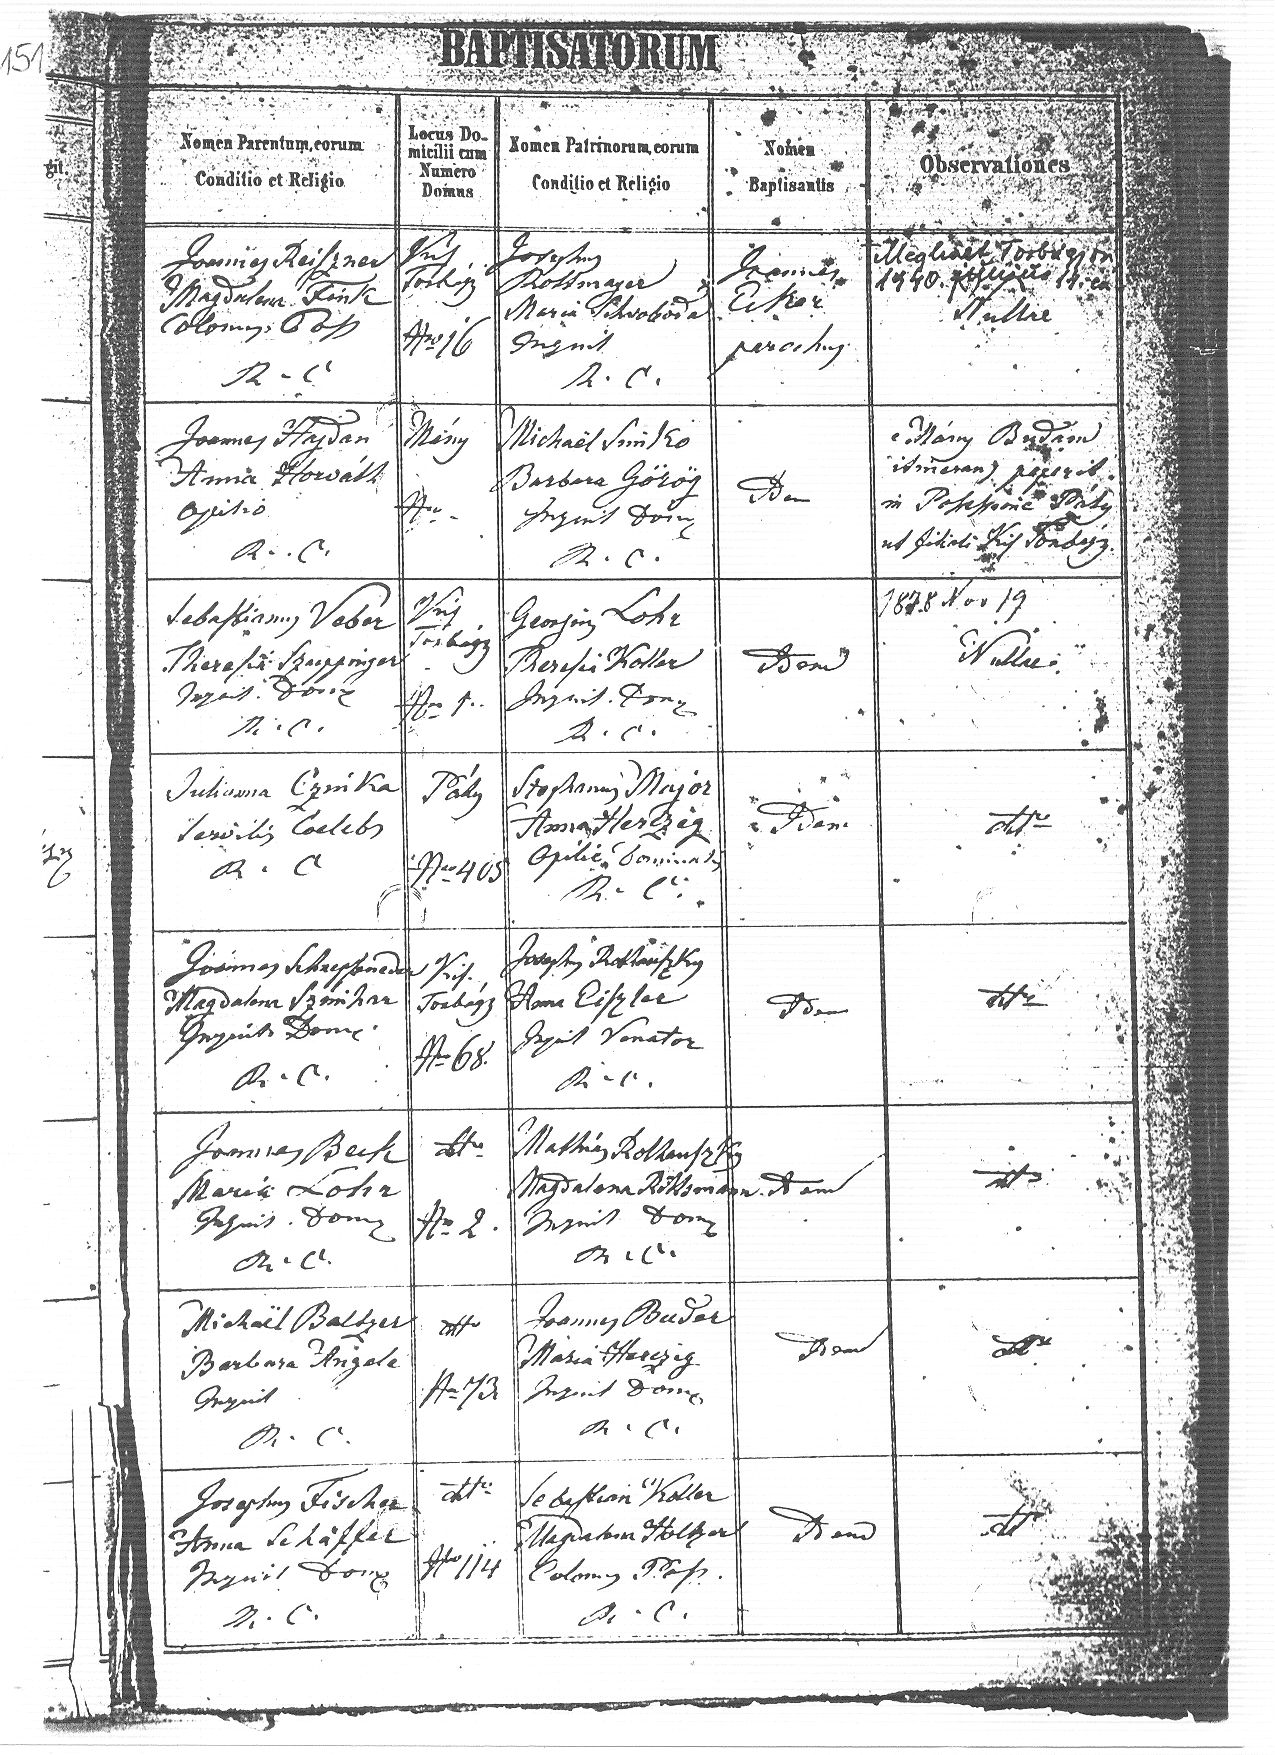 151
BAPTISATORUM
Nomen Parentum, eorum
Conditio et Religio
Locus Do-
micilii cum
Numero
Domus
Nomen Patrinorum, eorum
Conditio et Religio
Nomen
Baptisantis
Observationes
git.
Joannes Reiszner
Magdalena Fink
Colonus Poss
R. C
Kis
Torbágy
Nro 16
Josephus
Rottmayer
Maria Schvoboda
Inquil
R. C.
Joannes
Ecker
parochus
Meghalt Torbágyon
1940.
Nullae
Joannes Hajdan
Anna Horváth
Opilio
R. C.
Mány
Nro -
Michaël Sinko
Barbara Görög
Inquil Dom
R. C.
Idem
Mány Budam
itinerans peperit
in Possessione Páty
ut filiali Kis Torbágy.
Sebastianus Veber
Theresia Szeppinger
Inquil. Dom
R. C.
Kis
Torbágy
Nro 1.
Georgius Lohr
Theresia Koller
Inquil. Dom
R. C.
Idem
1878 Nov 19
Nullae
Julianna Czinka
Servilis Coelebs
R. C
Páty
Nro 405
Stephanus Major
Anna Herczeg
Opilio
R. C.
Idem
dtto
Joannes
Magdalena
Inquil Dom
R. C.
Kis
Torbágy
Nro 68.
Josephus Rothauszky
Anna Eiszler
Inquil Venator
R. C.
Idem
dtto
Joannes Beck
Maria Lohr
Inquil. Dom
R. C.
dtto
Nro 2.
Mathias Rothauszky
Magdalena
Inquil Dom
R. C.
Idem
dtto
Michaël Baltzer
Barbara Angele
Inquil
R. C.
dtto
Nro 73
Joannes Buder
Maria Herczig
Inquil Dom
R. C.
Idem
dtto
Josephus Fischer
Anna Schäffer
Inquil Dom
R. C.
dtto
Nro 114
Sebastian Koller
Magdalena Holtzer
Colonus Poss.
R. C.
Idem
dtto